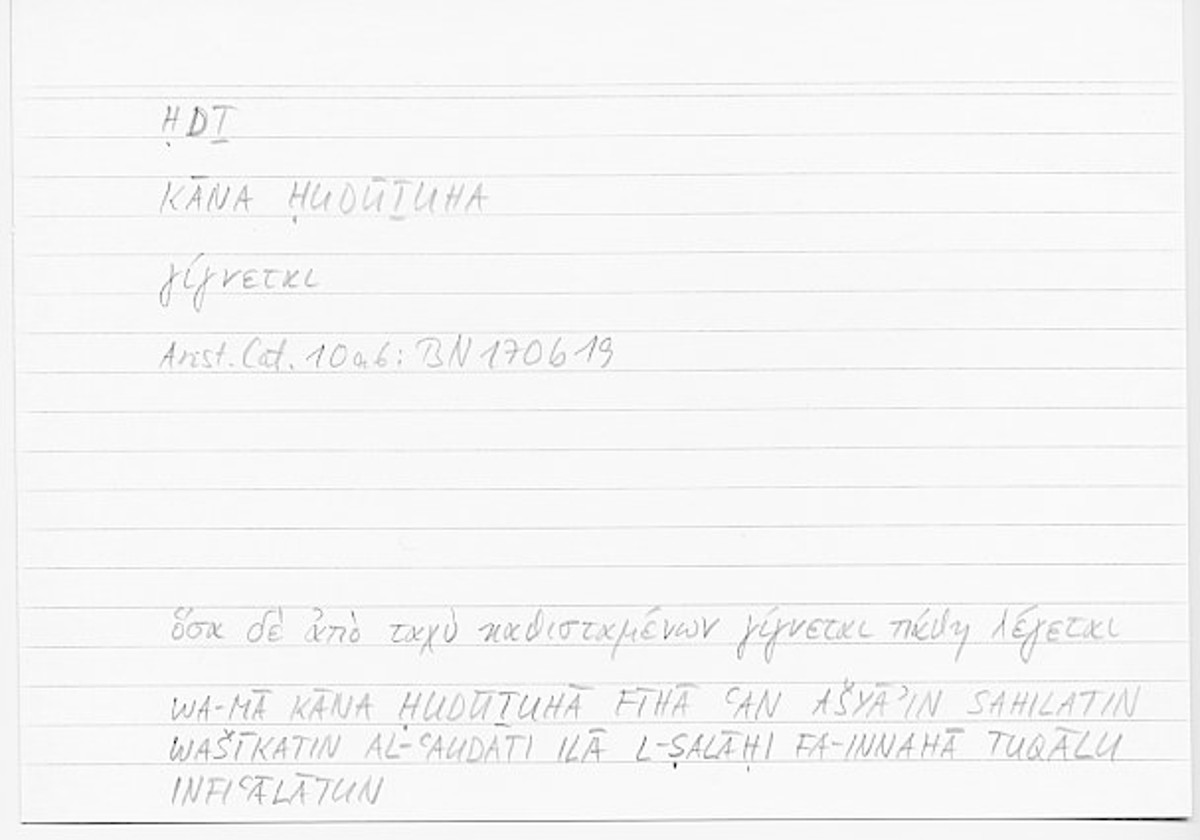 ḤDṮ
KĀNA ḤUDŪṮUHA
γίγνεται
Arist. Cat. 10a6: BN 170b19
ὅσα δὲ ἀπὸ ταχὺ καθισταμένων γίγνεται πάθη λέγεται
WA-MĀ KĀNA ḤUDŪṮUHĀ FĪHĀ ʿAN AŠYĀʾIN SAHILATIN
WAŠĪKATIN AL-ʿAUDĀTI ILĀ L-ṢALĀḤI FA-INNAHĀ TUQĀLU
INFIʿĀLĀTUN